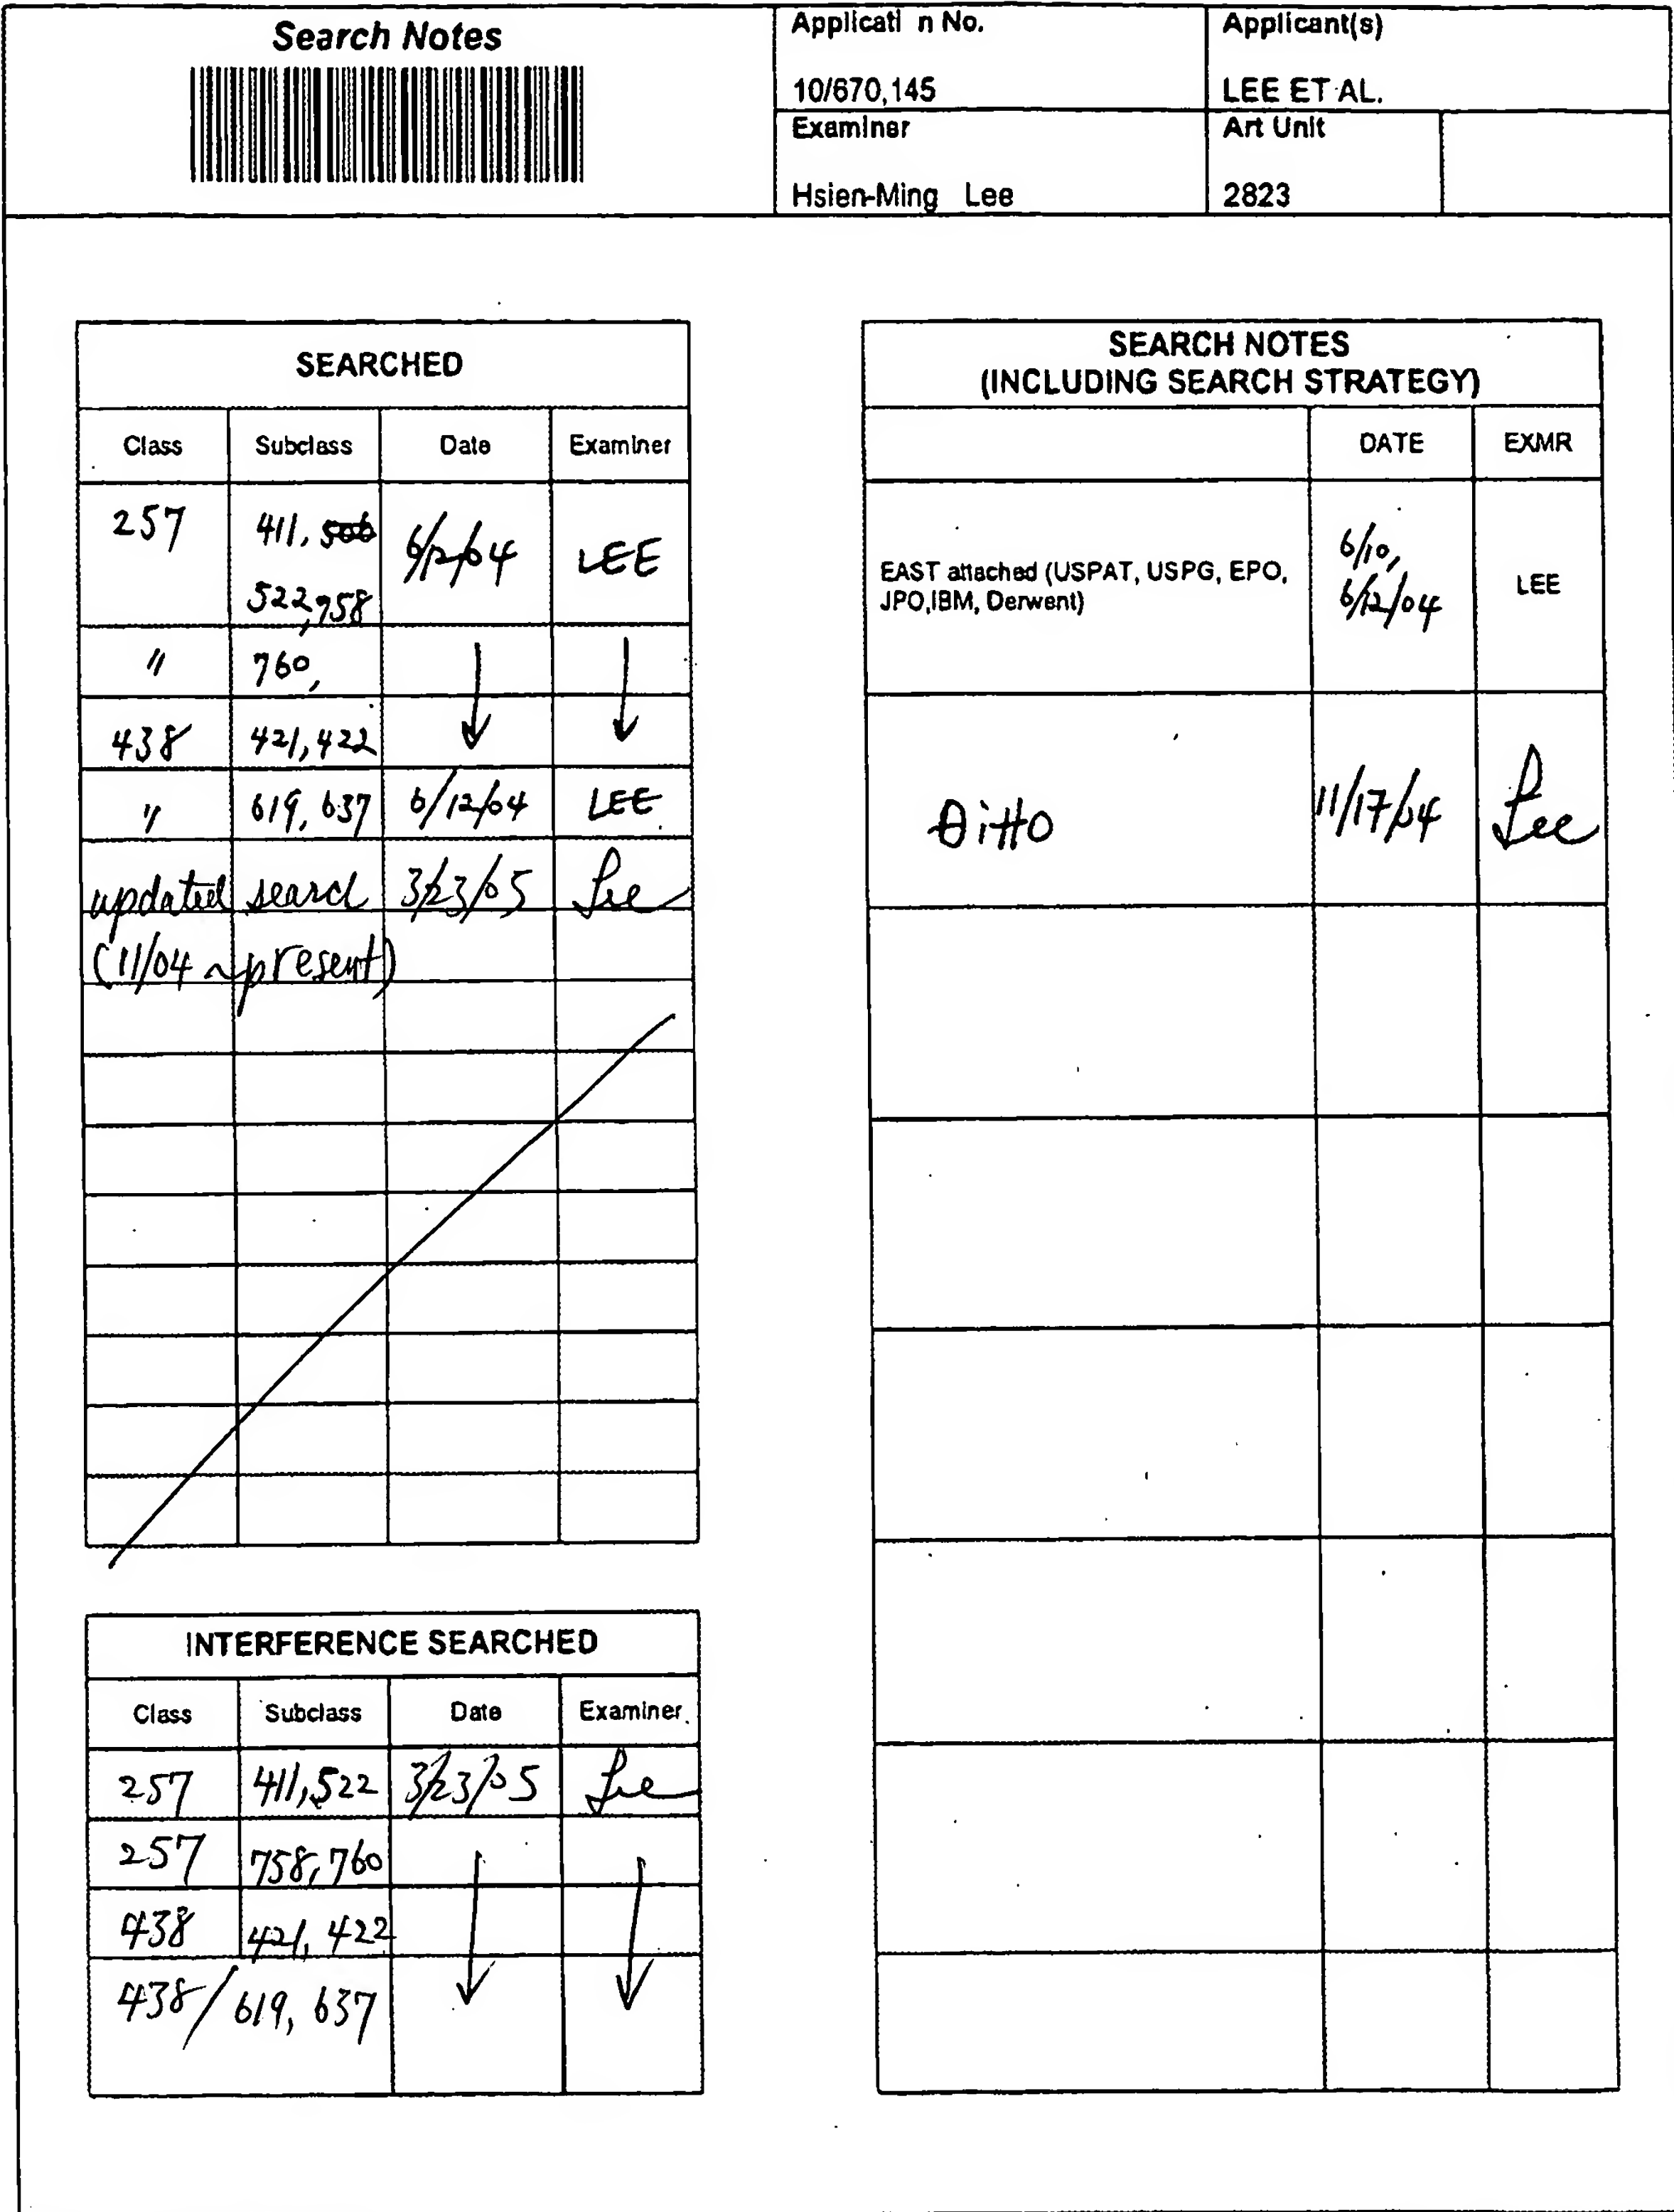 Search Notes
Applicati n No.
10/670,145
Applicant(s)
LEE ET AL.
Examiner
Hsien-Ming Lee
Art Unit
2823
SEARCHED
Class Subclass Date Examiner
257 411, 506 6/12/04 LEE
522,758
〃 760,
438 421,422
〃 619, 637 6/12/04 LEE
updated search 3/23/05 Lee
(11/04 ~ present)
INTERFERENCE SEARCHED
Class Subclass Date Examiner
257 411,522 3/23/05 Lee
257 758,760
438 421, 422
438/619, 637
SEARCH NOTES
(INCLUDING SEARCH STRATEGY)
DATE EXMR
EAST attached (USPAT, USPG, EPO,
JPO,IBM, Derwent)
6/10,
6/12/04
LEE
Ditto 11/17/04 Lee